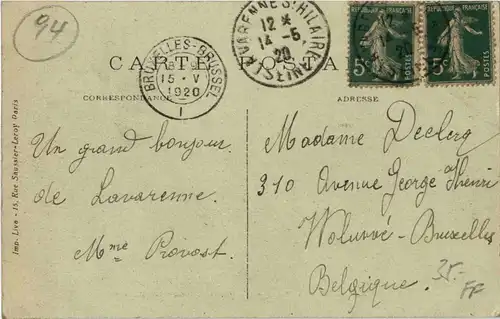 94
LA VARENNE-ST-HILAIRE
12 *
14 - 5
20
(SEINE)
REPUBLIQUE FRANÇAISE
REPUBLIQUE FRANÇAISE
5c
POSTES
5c
POSTES
CARTE POSTALE
BRUXELLES-BRUSSEL
15-V
1920
1
CORRESPONDANCE
ADRESSE
Un grand bonjour
de Lavarenne.
Mme Provost.
Madame Declerq
310 Avenue George Henri
Woluwé-Bruxelles
Belgique.
35.-
FF
Imp. Liva - 15, Rue Saussier-Leroy Paris